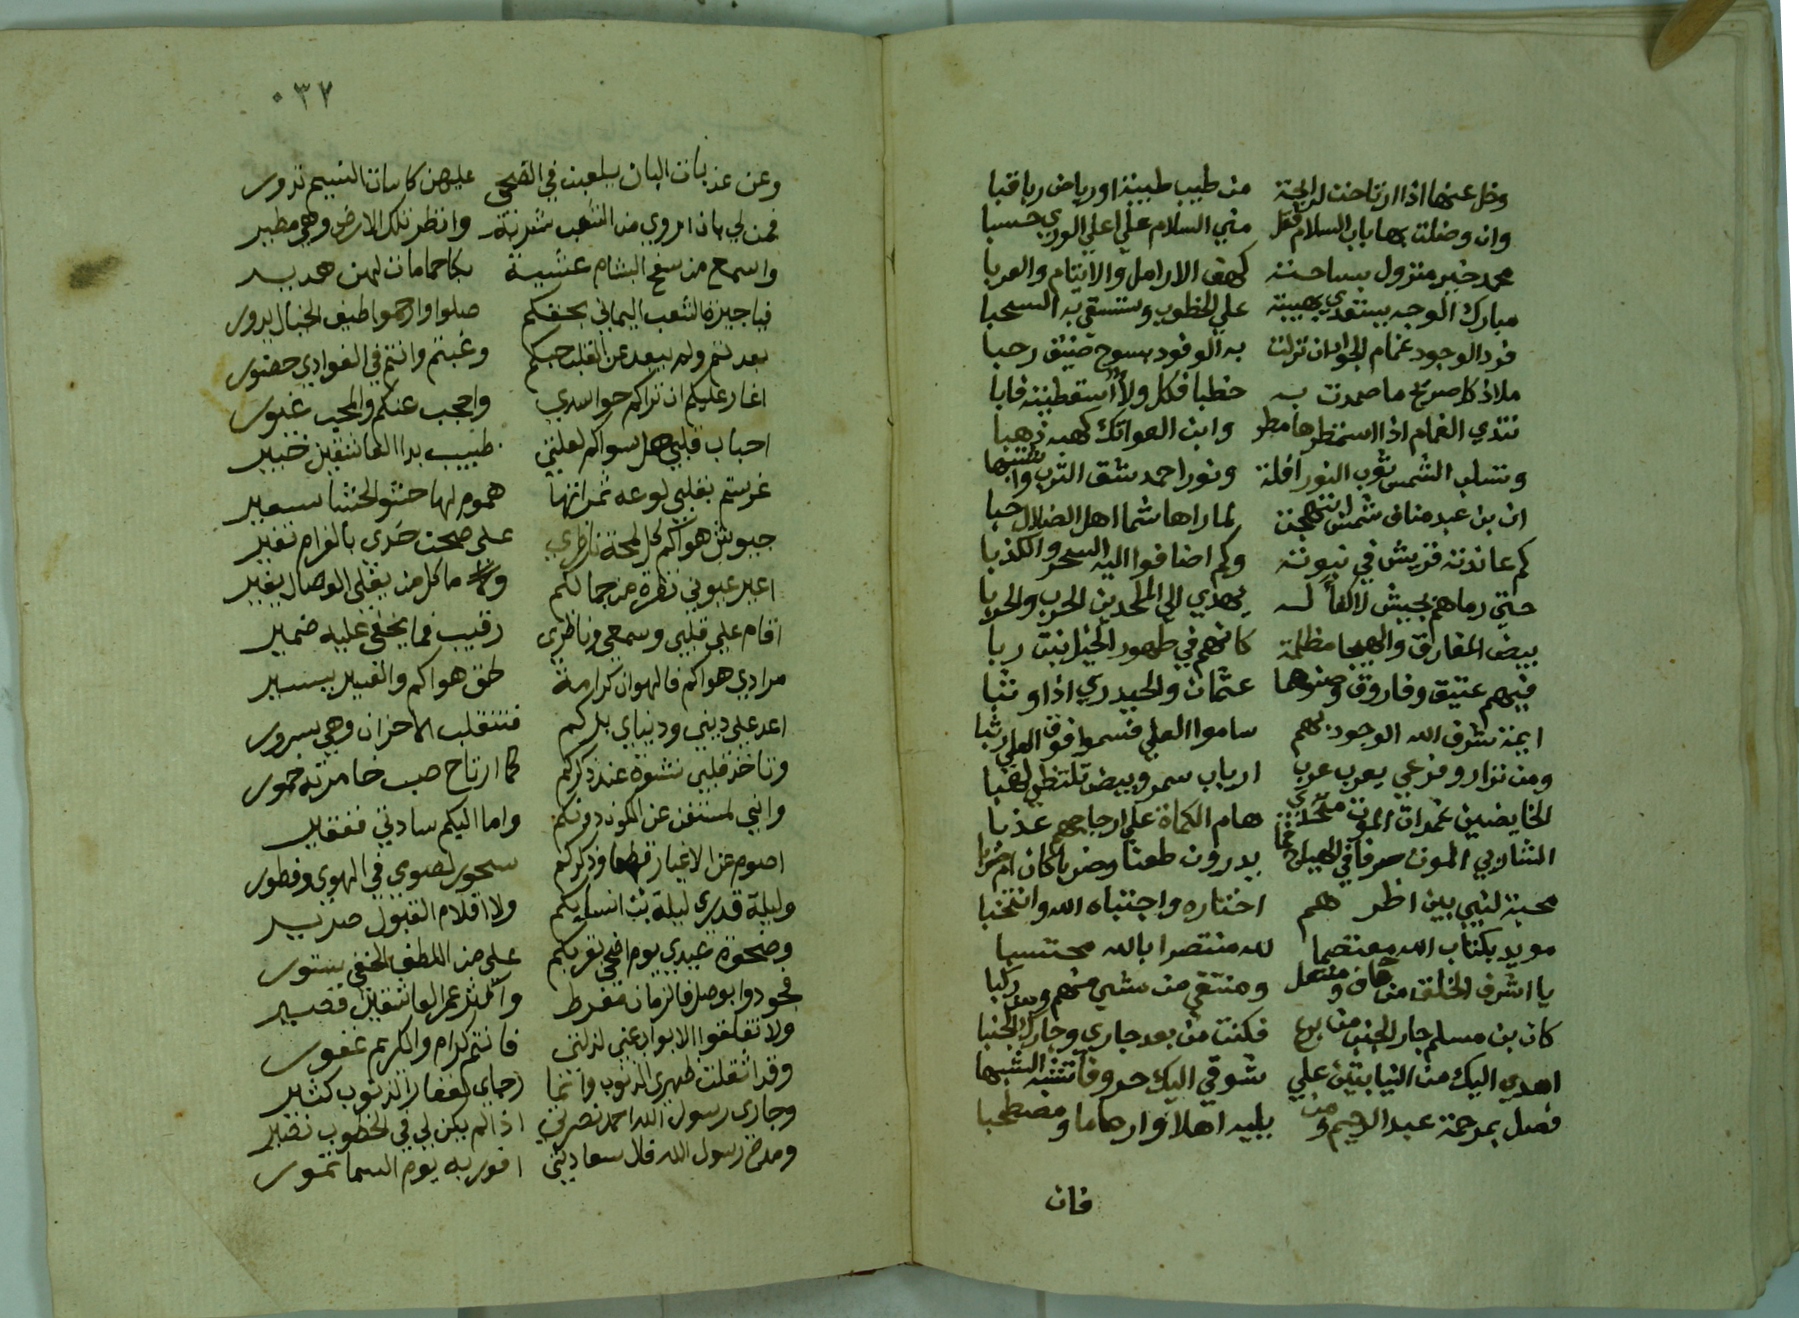 وخل عنها اذا ارتاحت لرايحة من طيب طيبة او رياض رباقبا
وان وصلت بها باب السلام فقل مني السلام علي اعلي الوري حسبا
محمد خير منزول بساحته كهف الارامل والايتام والعربا
مبارك الوجه يستعدي بهيبته علي الخطوب ويستسقي به السحبا
فرد الوجود غمام الجود ان نزلت به الوفود بسوح ضيق رحبا
ملاذ كل صريخ ما صمدت به خطبا فكل ولا
تندي الغمام اذا استمطرها مطر وابن العواتك كهبه ذهبا
وتسلب الشمس ثوب النور افلة ونور احمد شق الترب
ان بن عبد مناف شمس لما راها شما اهل الضلال خبا
كم عاندته قريش في نبوته وكم اضافوا اليه السحر والكذبا
حتي رماهم بجيش لا كفأ له يهدي الي الملحدين الحرب والحربا
بيض المفارق والهيجا مظلمة كانهم في ظهور الخيل نبت ربا
فيهم عتيق وفاروق وصنوهما عثمان والحيدري اذا وثبا
ايمة شرف الله الوجود بهم ساموا العلي فسموا فوق العلي رتبا
ومن نزار وفرعي يعرب عرب ارباب سمر وبيض تلتظي لهبا
الخايضين غمرات الموت هام الكماة علي ارجايهم عذبا
الشاربي الموت صرفا في الهياج يدرون طعنا وضربا كان ام ضربا
محبة لنبي بين اظهرهم اختاره واجتباه الله وانتخبا
مويد بكتاب الله معتصما لله منتصرا بالله محتسبا
يا اشرف الخلق من حاف ومنتعل ومنتقي من مشي منهم ومن ركبا
كان بن مسلم جار الجنب من برع فكنت من بعد جاري وجارك الجنبا
اهدي اليك من النيابتين علي شوقي اليك حروفا تشبه الشهبا
فصل بمرحمة عبد الرحيم ومن يليه اهلا وارحاما ومصطحبا
فان
٠٣٢
وعن عذبات البان يلعبن في الضحي عليهن كاسات النسيم تدور
فمن لي بان اروي من الشعب شربة وانظر تلك الارض وهي مطير
واسمع من سفح البشام عشية بكا حمامات لهن هدير
فيا جيرة الشعب اليماني بحقكم صلوا وارحموا طيف الخيال يزور
بعدتم ولم يبعد عن القلب حبكم وغبتم وانتم في الفوادي حضور
اغار عليكم ان تراكم حواسدي واحجب عنكم والمحب غيور
احباب قلبي هل سواكم لعلتي طبيب بدا العاشقين خبير
غرستم بقلبي لوعه ثمراتها هموم لها حشو الحشا سعير
جيوش هواكم كل لمحة ناظري علي صحن خدي بالغرام تغير
اعير عيوني نظرة من جمالكم وما كل من يقلي الوصال يغير
اقام علي قلبي وسمعي وناظري رقيب فما يخفي عليه ضمير
مرادي هواكم فالهوان كرامة لحق هواكم والعسير يسير
اعد علي ديني ودنياي بركم فتنقلب الاحزان وهي سرور
وتاخذ قلبي نشوة عند ذكركم كما ارتاح صب خامرته خمور
واني لمستغن عن الكون دونكم واما اليكم سادتي ففقير
اصوم عن الاغيار قطعا وذكركم سحور لصومي في الهوي وفطور
وليلة قدري ليلة بت انسا بكم ولا اقلام القبول صرير
وضحوة عيدي يوم اضحي بقربكم علي من اللطف الخفي ستور
فجودوا بوصل فالزمان مفرط واكثر عمر العاشقين قصير
ولا تغلقوا الابواب عني لزلتي فانتم كرام والكريم غفور
وقد اثقلت ظهري الذنوب وانما رجاي لغفار الذنوب كثير
وجاري رسول الله احمد نصرتي اذا لم يكن لي في الخطوب نصير
ومدح رسول الله فال سعادتي افوز به يوم السما تمور